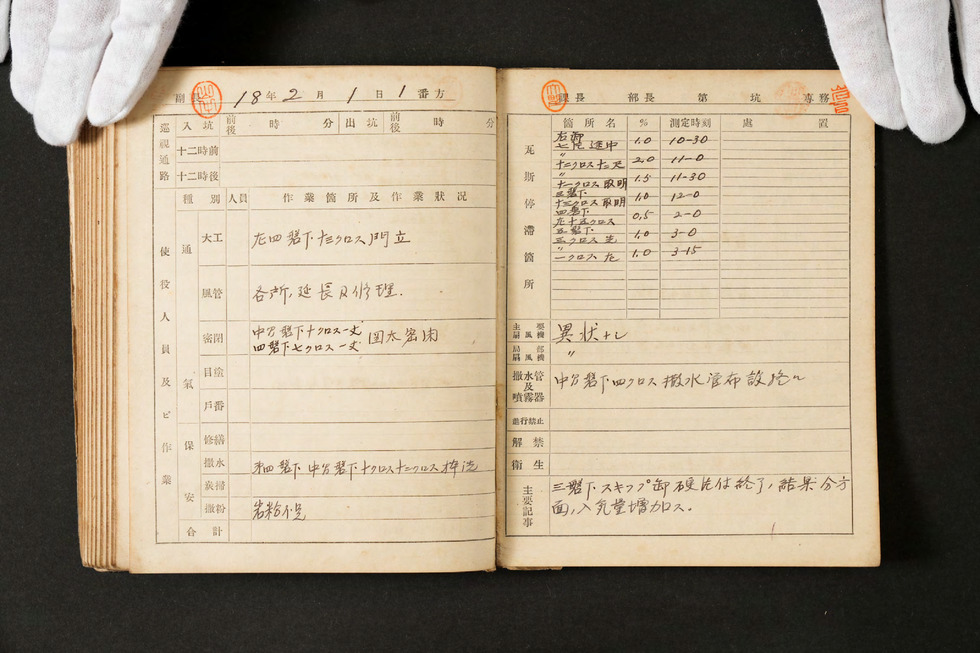 18年2月1日1番方
巡視通路 入坑 前後 時 分 出坑 前後 時 分
十二時前
十二時後
使役人員及ビ作業
種別 人員 作業箇所及作業狀况
通氣
大工 左四盤下十三クロス門立
風管 各所、延長及修理.
密閉 中分盤下十クロス一丈
四盤下七クロス一丈
目塗
戸番
保安
修繕
撒水 中分盤下十クロス十二クロス
炭掃
撒粉 岩粉
合計
課長 部長 第 坑 専務
瓦斯停滯箇所
箇所名 % 測定時刻 處置
左卸
七尺 途中 1.0 10-30
〃
十二クロス 2.0 11-0
〃
十一クロス取明 1.5 11-30
三盤下
十三クロス取明 1.0 12-0
四盤下
左十五クロス 0.5 2-0
五盤下
三クロス先 1.0 3-0
〃
一クロス左 1.0 3-15
主要扇風機 異状ナシ
局部扇風機 〃
撒水管及噴霧器 中分盤下四クロス撒水管布設
進行禁止
解禁
衛生
主要記事 三盤下スキップ卸硬片付終了、結果分方
面、入気量増加ス。